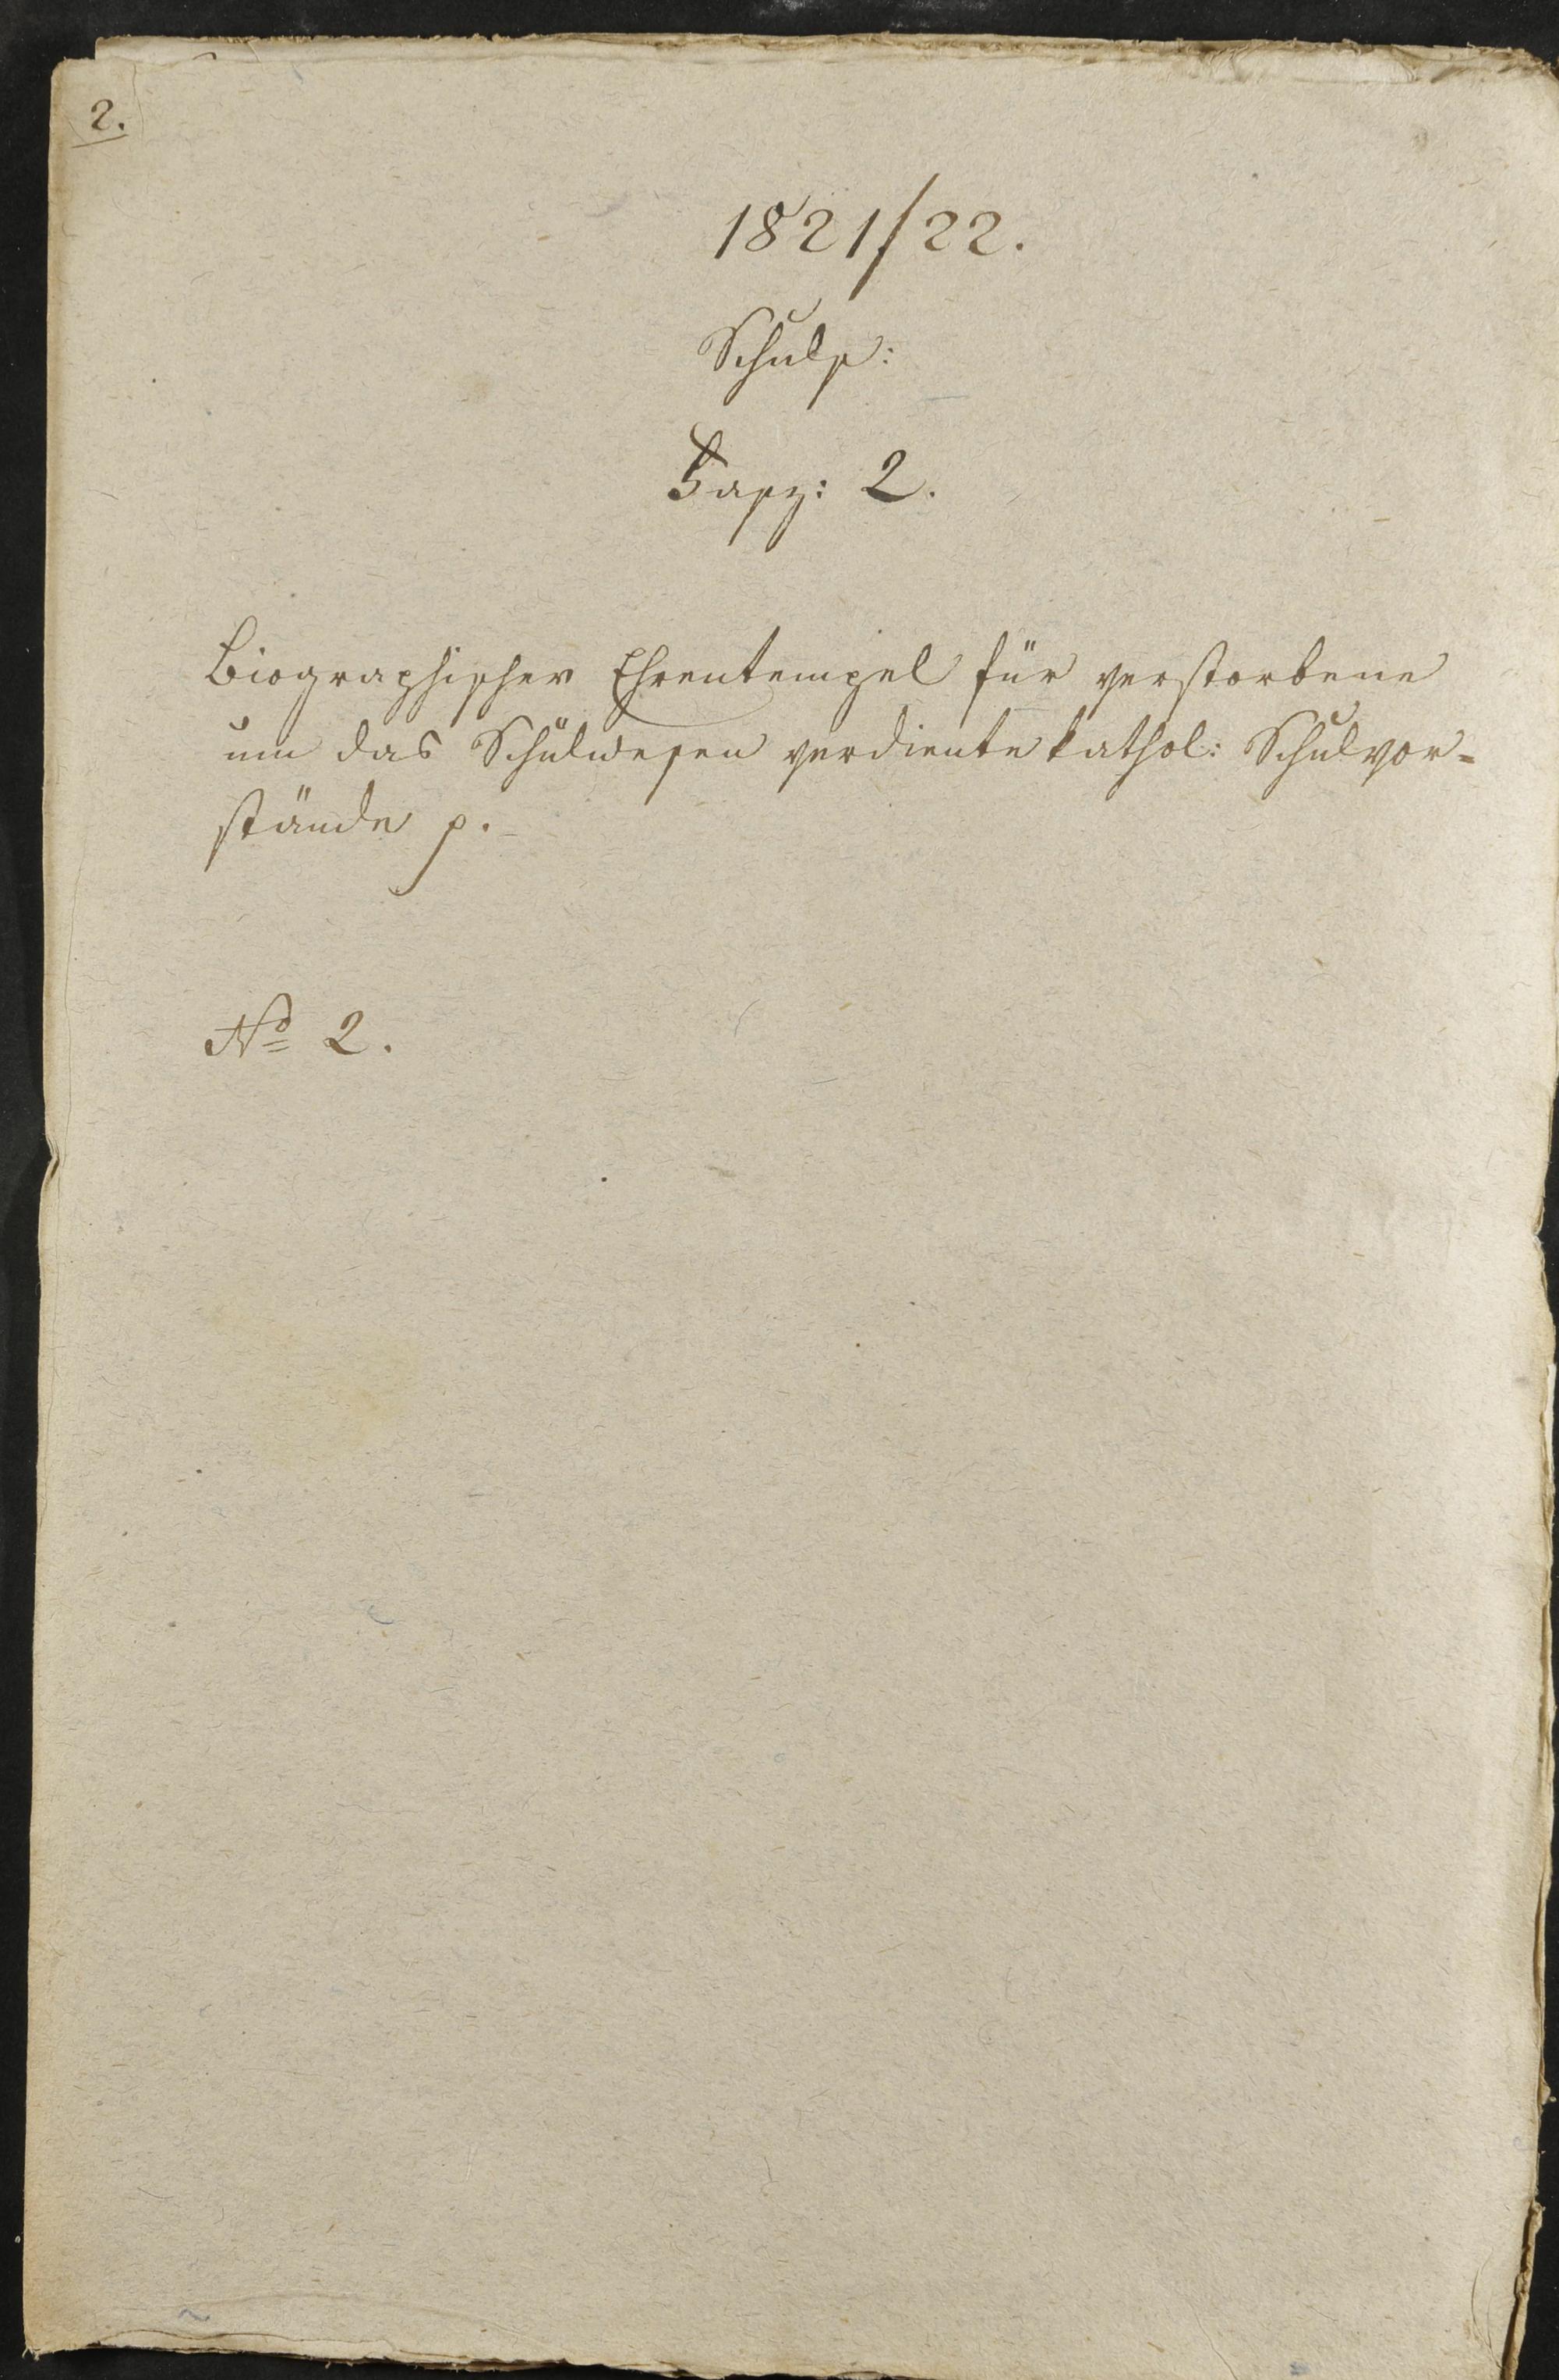 2.
1821/22.
Schuls:
Fasz: 2.
Biographischer Ehrentempel für verstorbene
um das Schulwesen verdiente kathol: Schulvor=
stände p.
No 2.